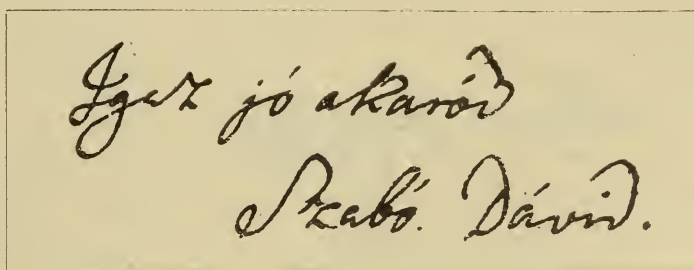 Igaz jó akaród
Szabó. Dávid.